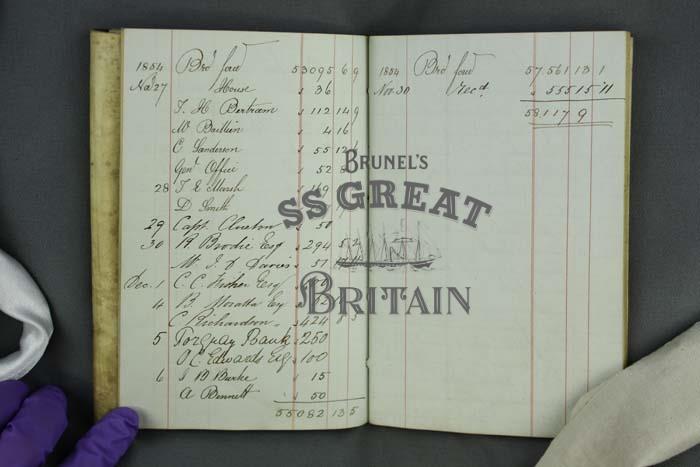 1854 Bro^t ford 53095 6 9
Nov 27 House " 36
T. H. Bertram " 112 14 9
W Baillien " 4 16
C Sanderson " 55 12
Genl Office " 52
28 T E Marsh " 169
D Smith "
29 Capt. " 50
30 W Brodie Esq " 294 5 2
W. J. D Davis " 51
Dec. 1 C. C. Fisher Esq
4 B. Mocatta Esq
C Richardson " 424 8 5
5 Torquay Bank " 250
O. C. Edwards Esq " 100
6 S B Burke " 15
A Bennett " 50
55082 13 5
1854 Bro^t ford 57.561 13 1
Nov. 30 Recd. " 555 15 11
58.117 9
BRUNEL'S
SS GREAT
BRITAIN